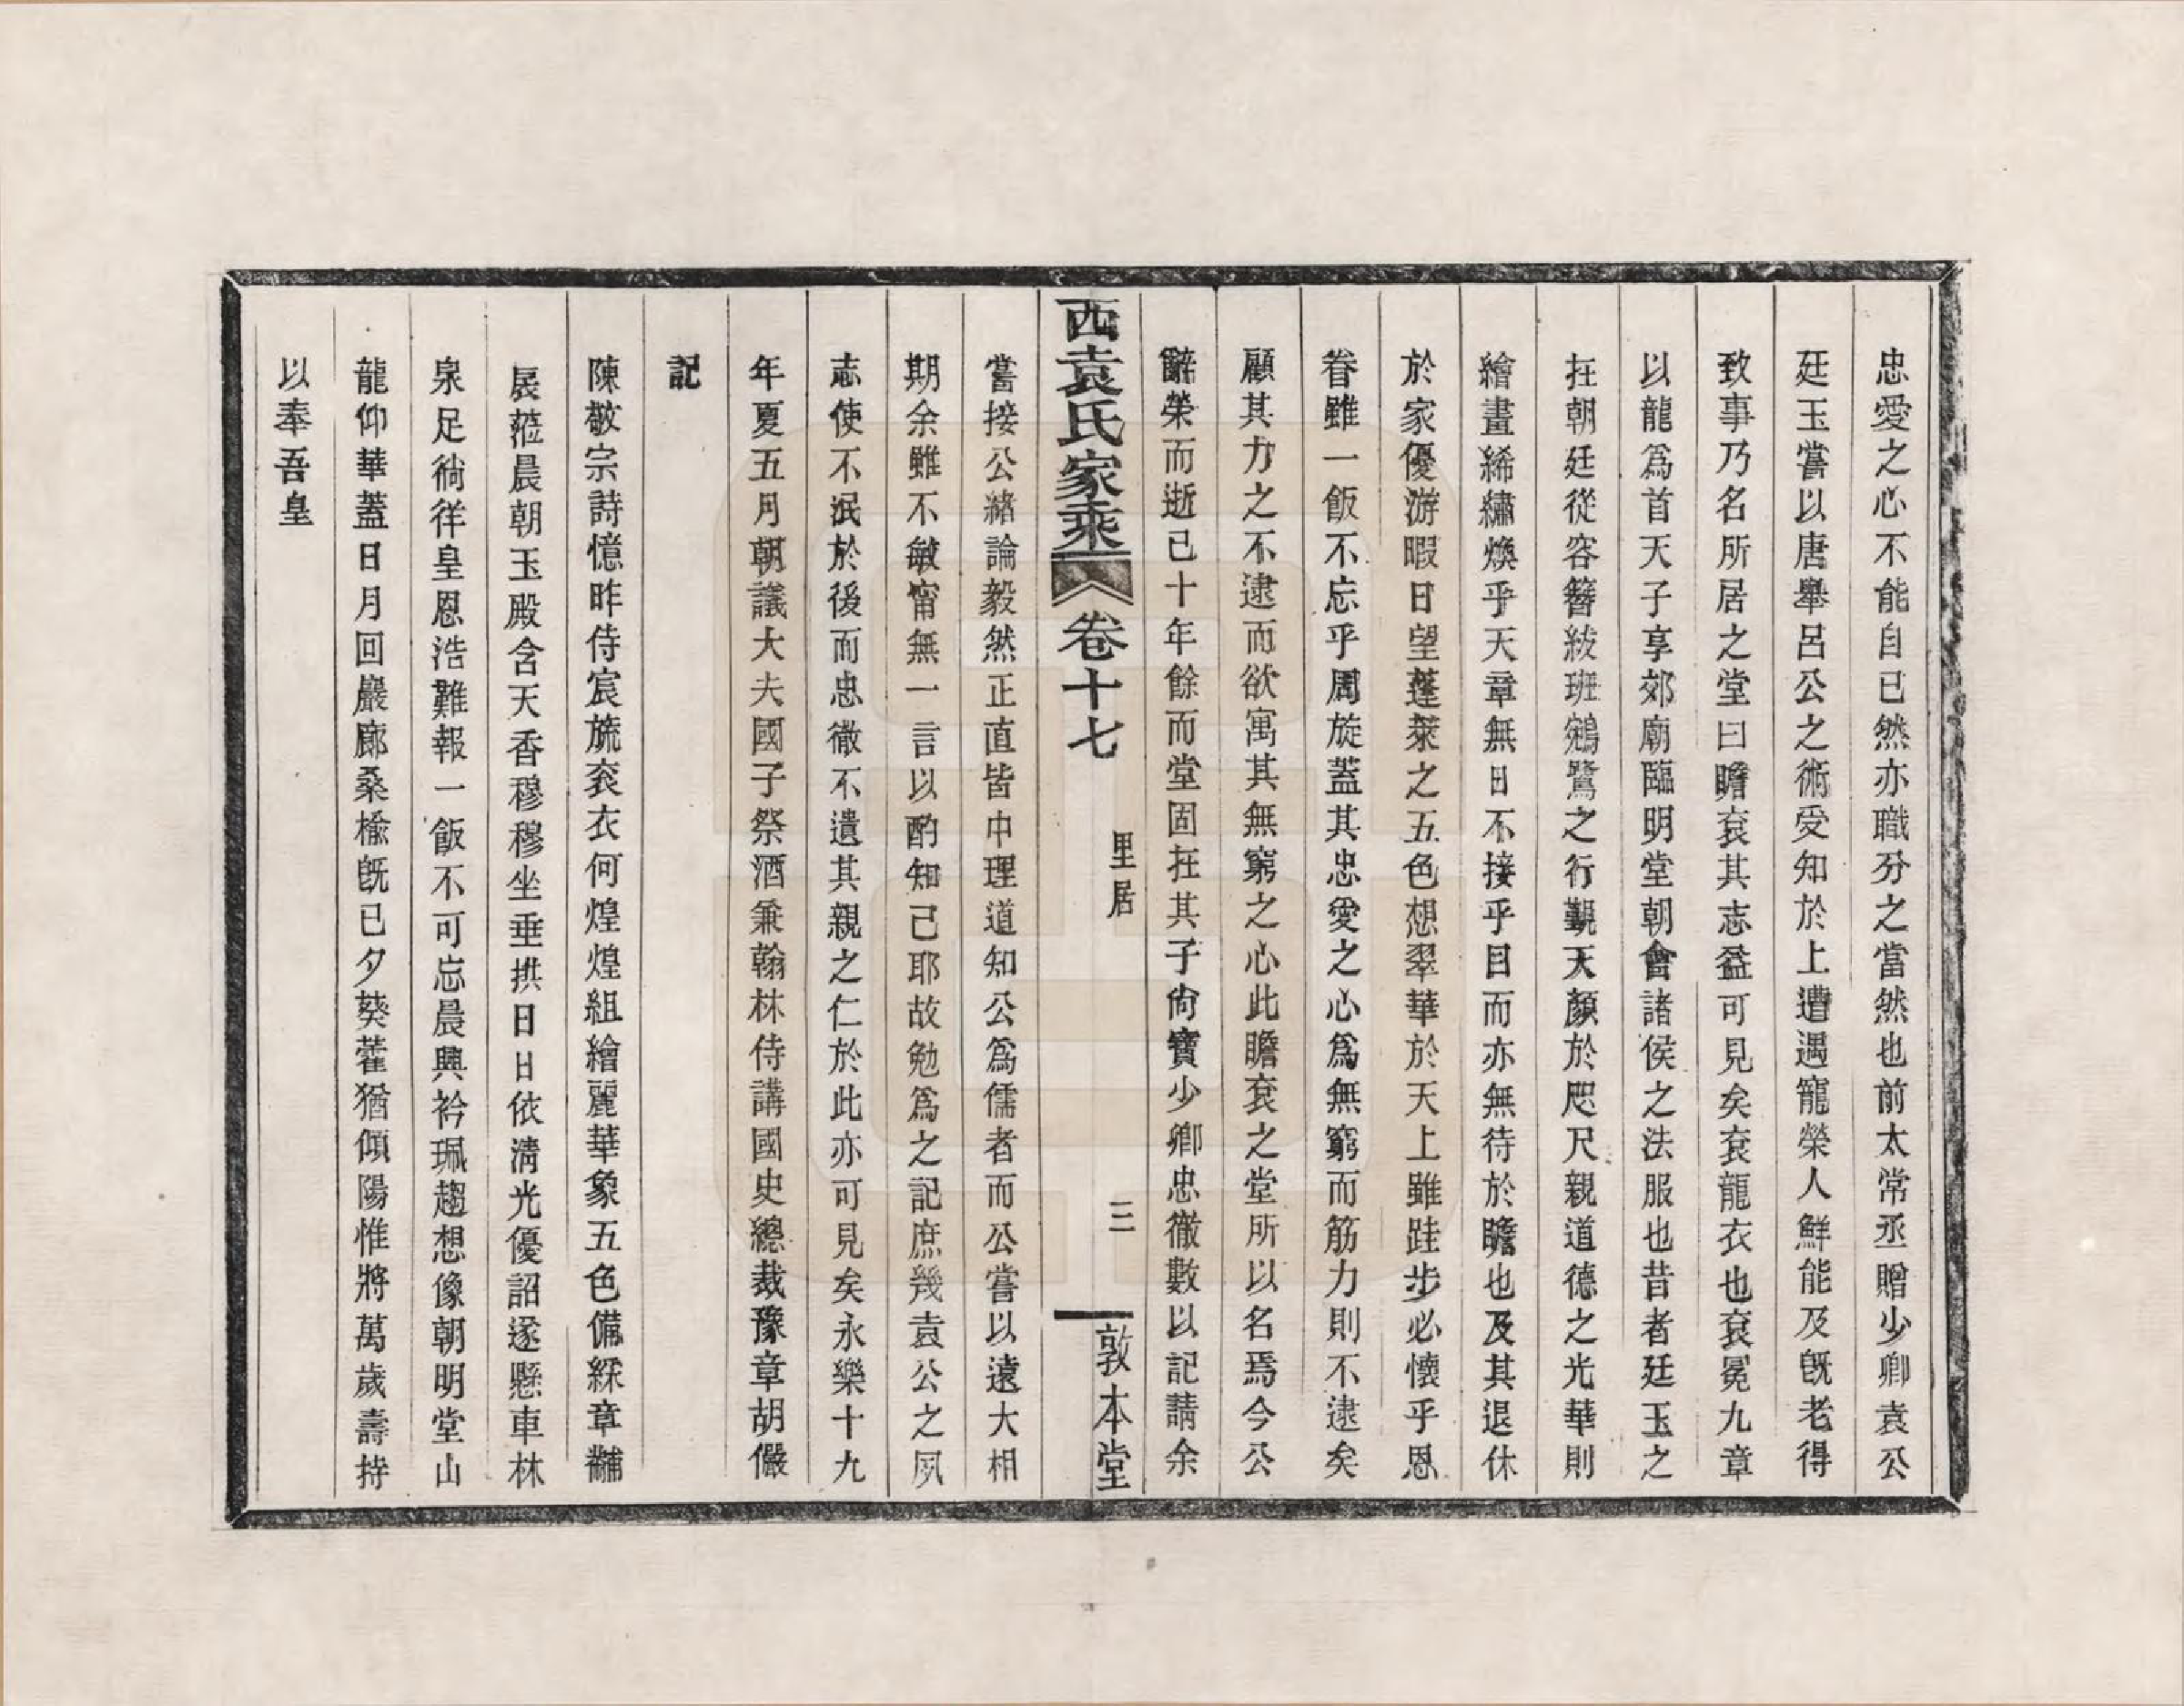 忠愛之心不能自已然亦職分之當然也前太常丞贈少卿袁公
廷玉嘗以唐舉呂公之術受知於上遭遇寵榮人鮮能及旣老得
致事乃名所居之堂曰瞻袞其志益可見矣袞龍衣也袞冕九章
以龍爲首天子享郊廟臨明堂朝會諸侯之法服也昔者廷玉之
在朝廷從容簪紱班鵷鷺之行覲天顏於咫尺親道德之光華則
繪畫絺繡煥乎天章無日不接乎目而亦無待於瞻也及其退休
於家優游暇日望蓬萊之五色想翠華於天上雖跬步必懷乎恩
眷雖一飯不忘乎周旋蓋其忠愛之心爲無窮而筋力則不逮矣
顧其力之不逮而欲寓其無窮之心此瞻袞之堂所以名焉今公
辭榮而逝已十年餘而堂固在其子尙寶少卿忠徹數以記請余
西袁氏家乘 卷十七 里居 三 敦本堂
嘗接公緒論毅然正直皆中理道知公爲儒者而公嘗以遠大相
期余雖不敏甯無一言以酌知己耶故勉爲之記庶幾袁公之夙
志使不泯於後而忠徹不遺其親之仁於此亦可見矣永樂十九
年夏五月朝議大夫國子祭酒兼翰林侍講國史總裁豫章胡儼
記
陳敬宗詩憶昨侍宸旒袞衣何煌煌組繪麗華象五色備綵章黼
扆蒞晨朝玉殿含天香穆穆坐垂拱日日依淸光優詔遂懸車林
泉足徜徉皇恩浩難報一飯不可忘晨興衿珮趨想像朝明堂山
龍仰華蓋日月回巖廊桑楡旣已夕葵藿猶傾陽惟將萬歲壽持
以奉吾皇